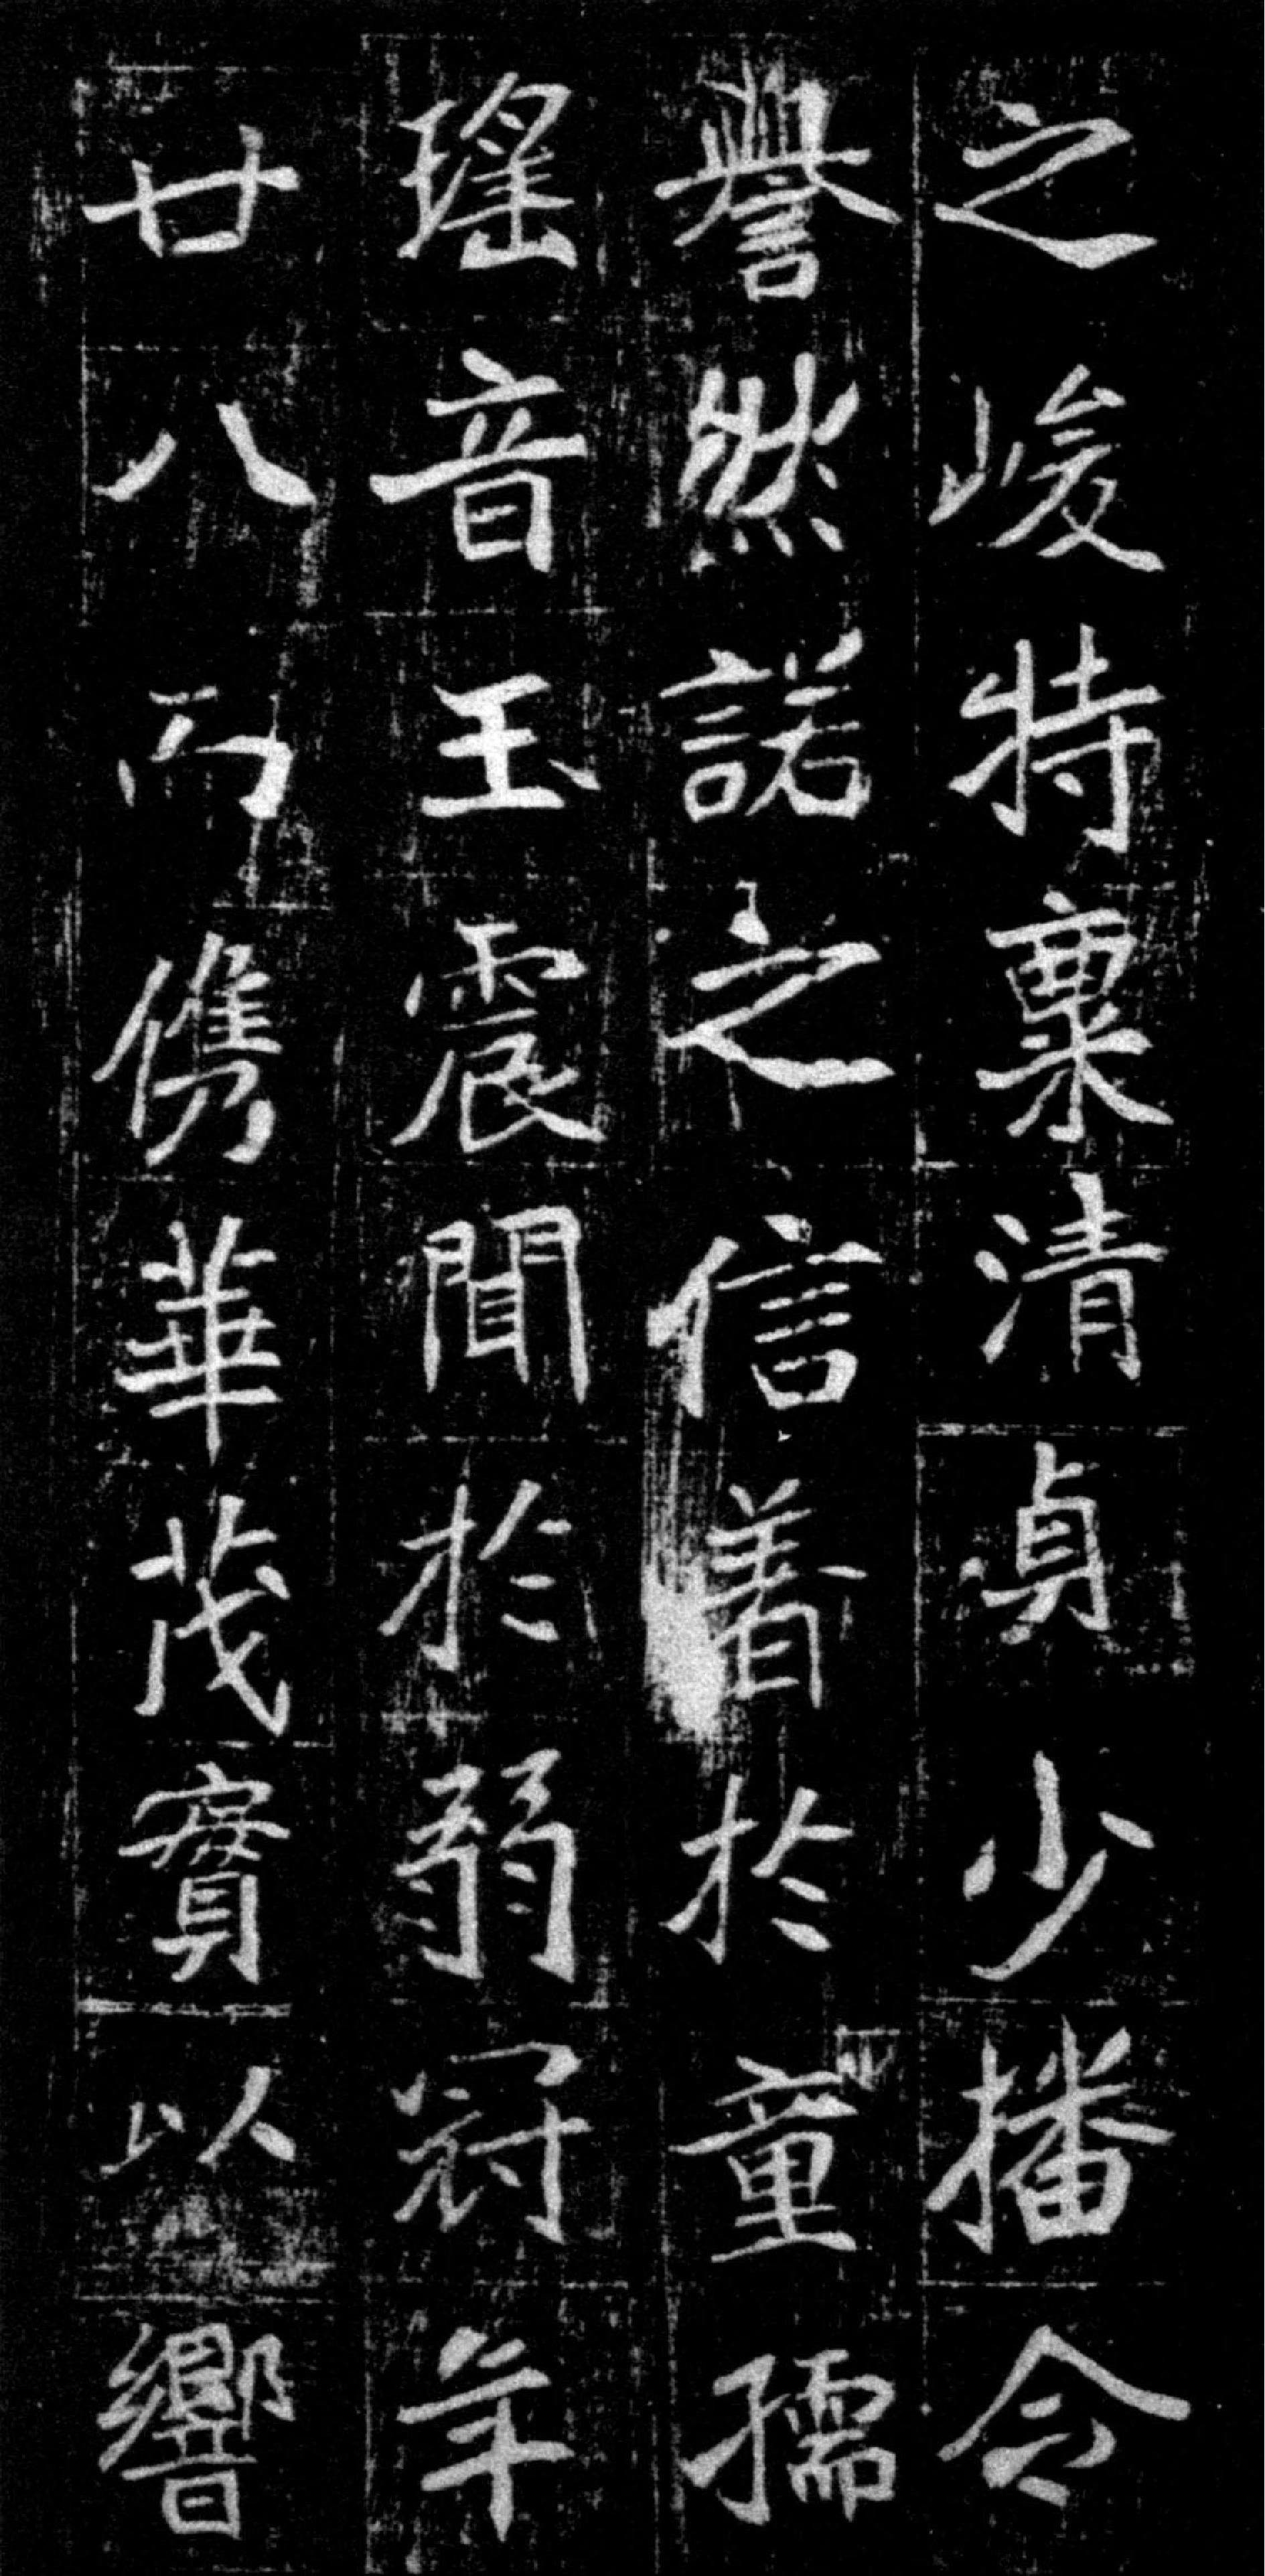 之峻特稟清貞少播令
譽然諾之信著於童孺
瑤音玉震聞於弱冠年
廿八而儁華茂實以響